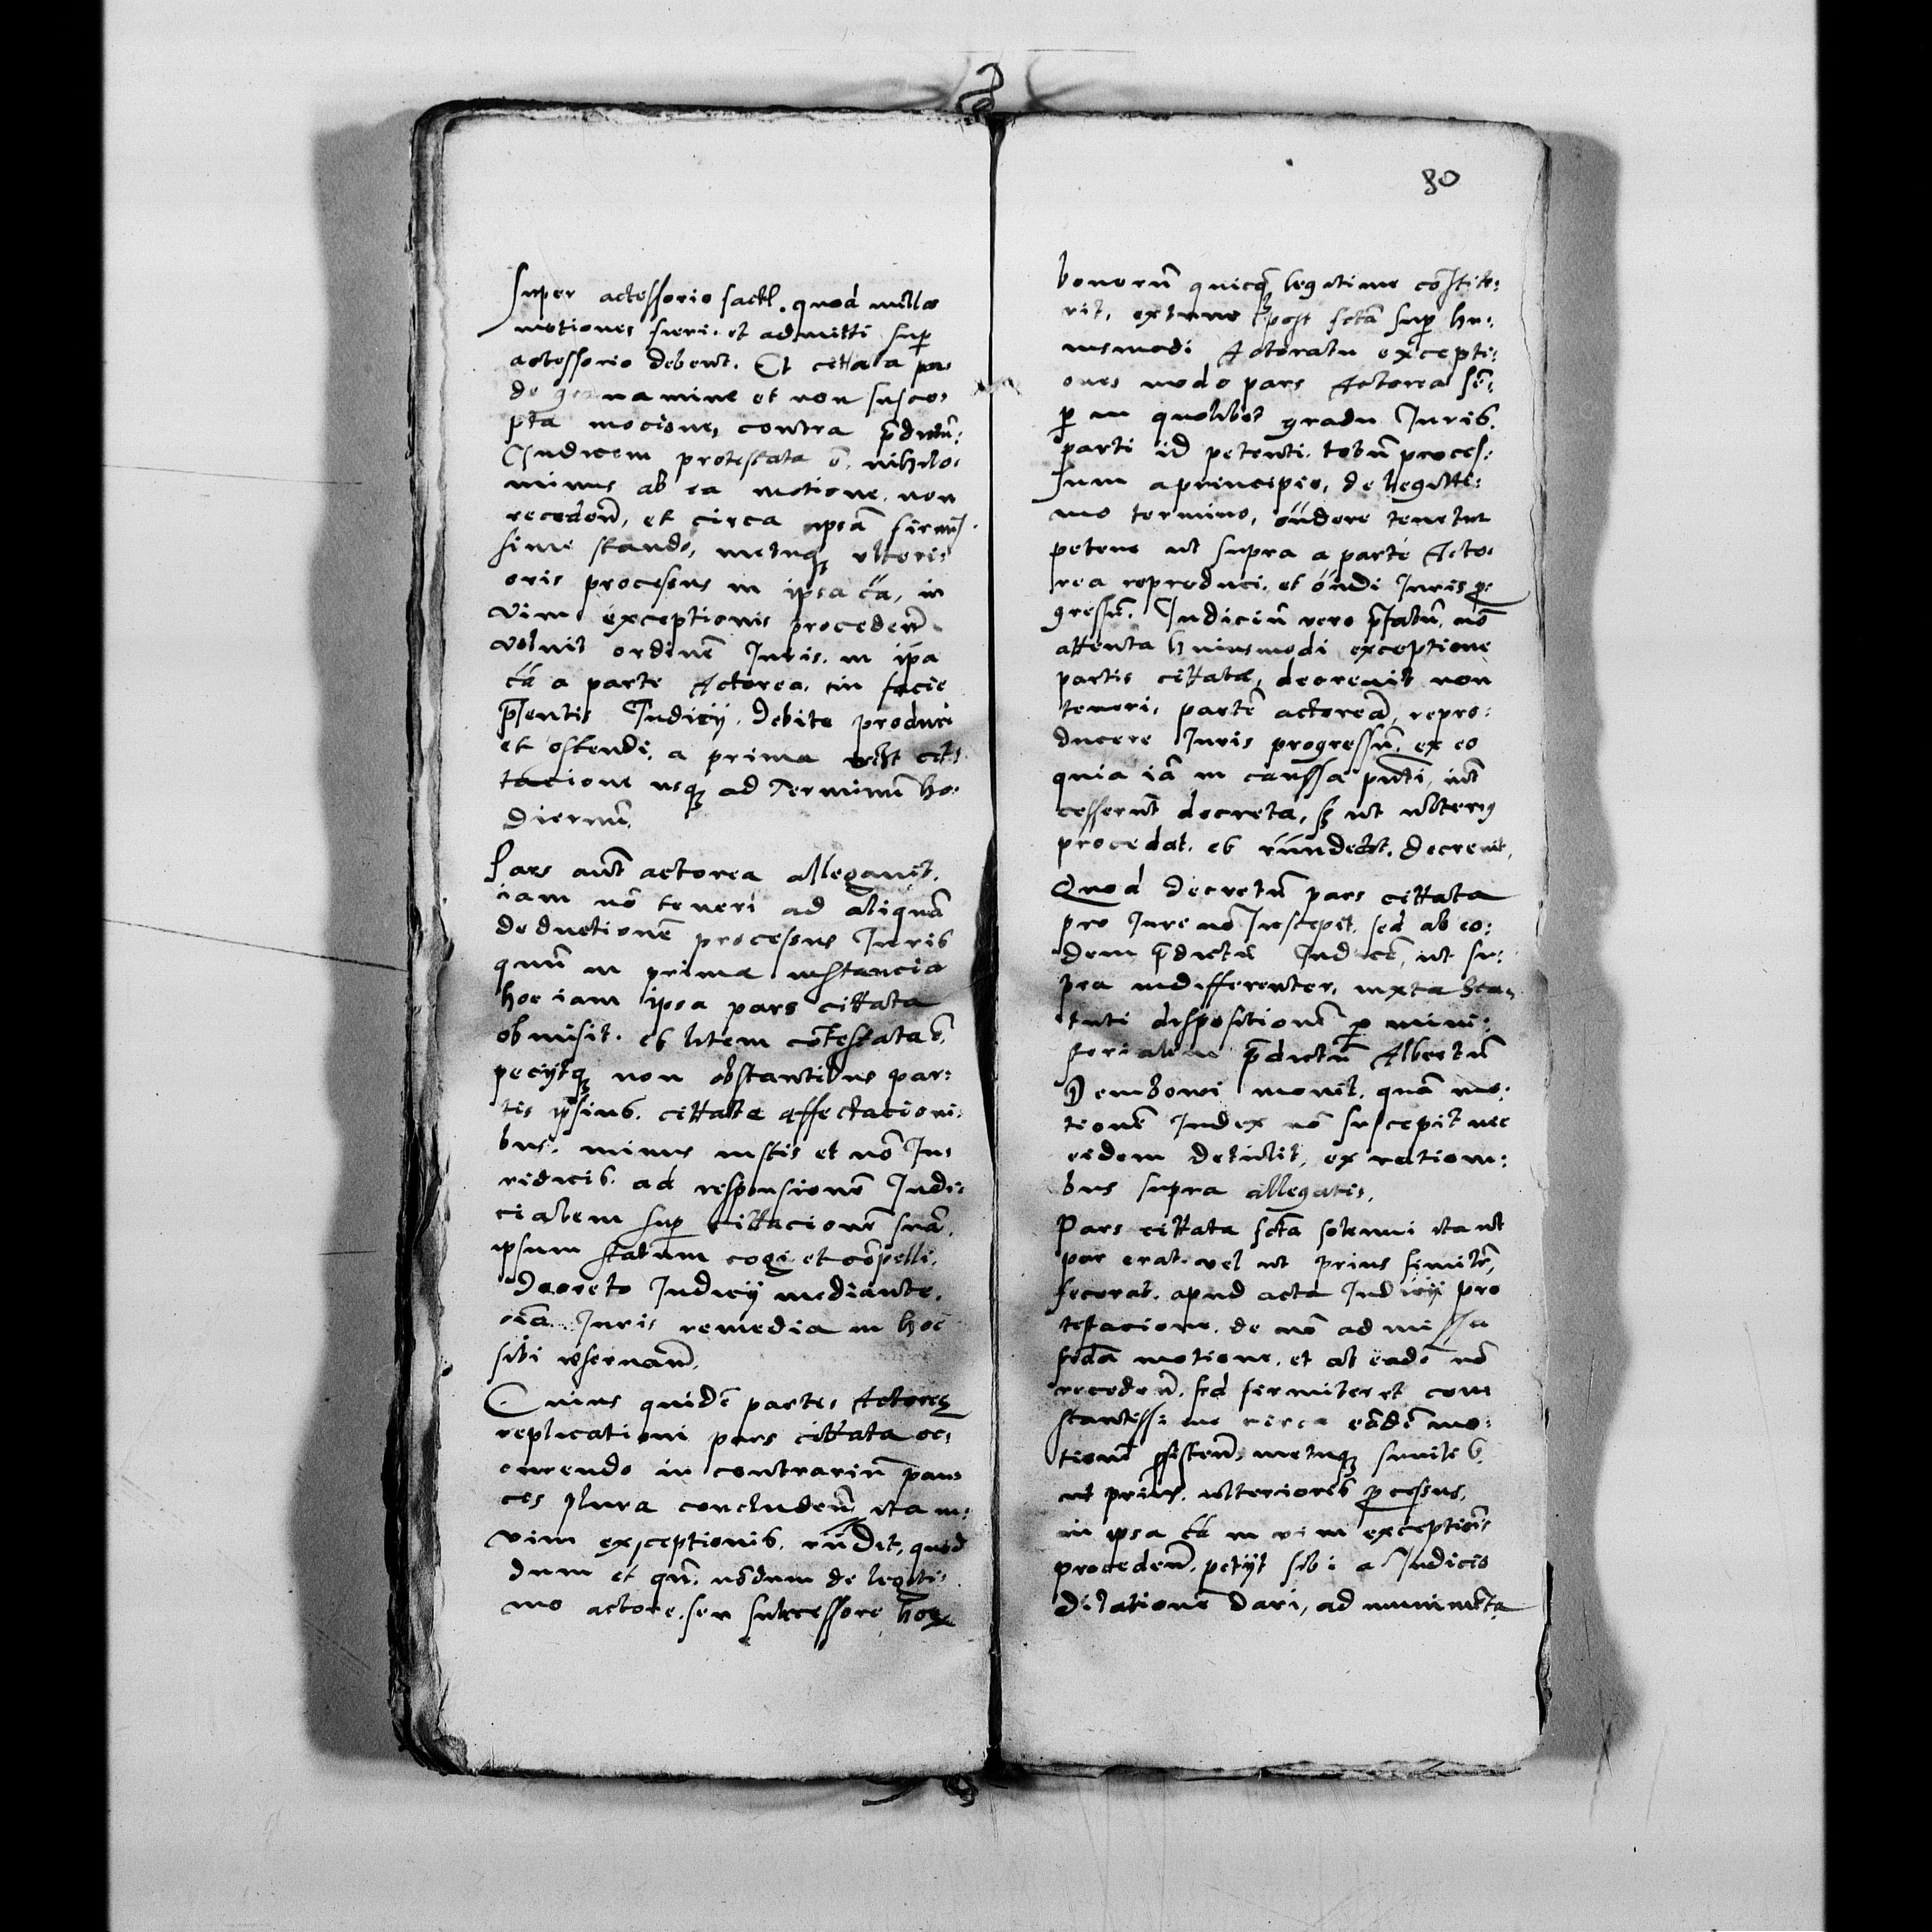 Super actessorio fact. quod nullæ
motiones fieri. et admitti sup
actessorio debent. Et cittata par
de gra na mine et non susce,
pta mocione, contra prdictū,
Iudicem protestata ē. nihilo,
minus ab ea motione. non
recedeñ, et circa ipsā firmis
sime stando, metuq ulteri,
oris processus in ipsa cā, in
vim exceptionis procedeñ
voluit ordinē Iuris. in ipa
cā a parte Actorea. in facie
pñsentis Iudicÿ. debite produci
et ostendi, a prima cit
tacione usq ad Terminū ho,
diernū.
Pars aūt actorea allegavit.
iam nō teneri ad aliquā
deductionē processus Iuris
quū in prima instancia
hoc iam ipsa pars cittata
obmisit. et litem cōtestata ē,
peciÿtq non obstantibus par,
tis ipsius. cittatæ affectacioni,
bus. minus iustis et nō Iu,
ridicis. ad responsionē Iudi,
cialem sup cittacionē suā.
ipsum statum cogi et cōpelli.
Decreto Iudicÿ mediante.
oīa Iuris remedia in hoc
sibi reservañ.
Cuius quidē partis Actoreæ
replicationi pars cittata oc,
currendo in contrariū pau,
cis plura concludeñ ita in,
vim exceptionis. rñdit, quod
dum et qñ. nōdum de legiti,
mo actore. seu successore, hor
80
bonorū quicq legitime cōstite,
rit, extunc post fctā sup hu,
iusmodi Actoratu excepti,
ones modo pars Actorea sē,
p in quolibet gradu Iuris.
parti id petenti. totū proces,
sum a principio, de legitti,
mo termino, oñdere tenetur
petens ut supra a parte Acto,
rea reproduci. et oñdi Iuris p,
gressū. Iudiciū vero pfatū, nō
attenta huiusmodi exceptione
partis cittatæ, decrevit non
teneri, partē actoreā, repro,
ducere Iuris progressū. ex eo
quia iā in caussa pñti, int
cesserūt decreta, sz ut ulterius
procedat. et rñndeat. decrevit,
Quod decretū pars cittata
pro Iure nō suscepit, sed ab eo,
dem prdictū Iudicē, ut su,
pra indifferenter, iuxta sta,
tuti dispositionē p mini,
sterialem prdictū Albertū
Dembowi movit. quā mo,
tionē Iudex nō suscepit nec
eidem detulit, ex rationi,
bus supra allegatis.
Pars cittata fctā solenni ita ut
par erat. vel ut prius similē,
fecerat. apud acta Iudicÿ pro
testacione. de nō admissa
fctā motione. et ab eadē nō
recedeñ. sed firmiter et con
stantissime circa eādē mo,
tionē psisteñ, metuq similes
ut prius. ulterioris pcessus,
in ipsa cā in vim exceptiōis
procedeñ. petÿt sibi a Iudicio
dilatione dari, ad munimēta